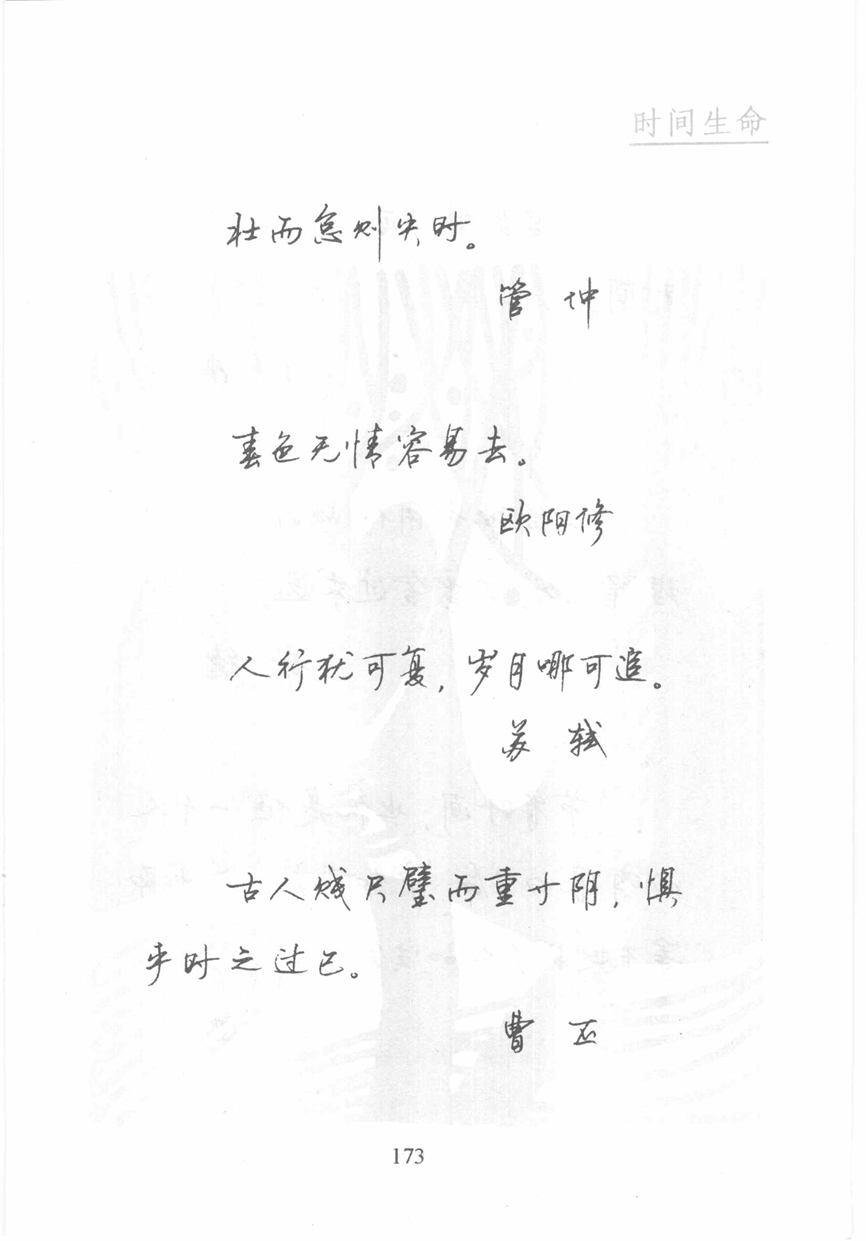 时间生命
壮而怠则失时。
管 仲
春色无情容易去。
欧阳修
人行犹可复，岁月哪可追。
苏 轼
古人贱尺璧而重寸阴，惧
乎时之过已。
曹 丕
173